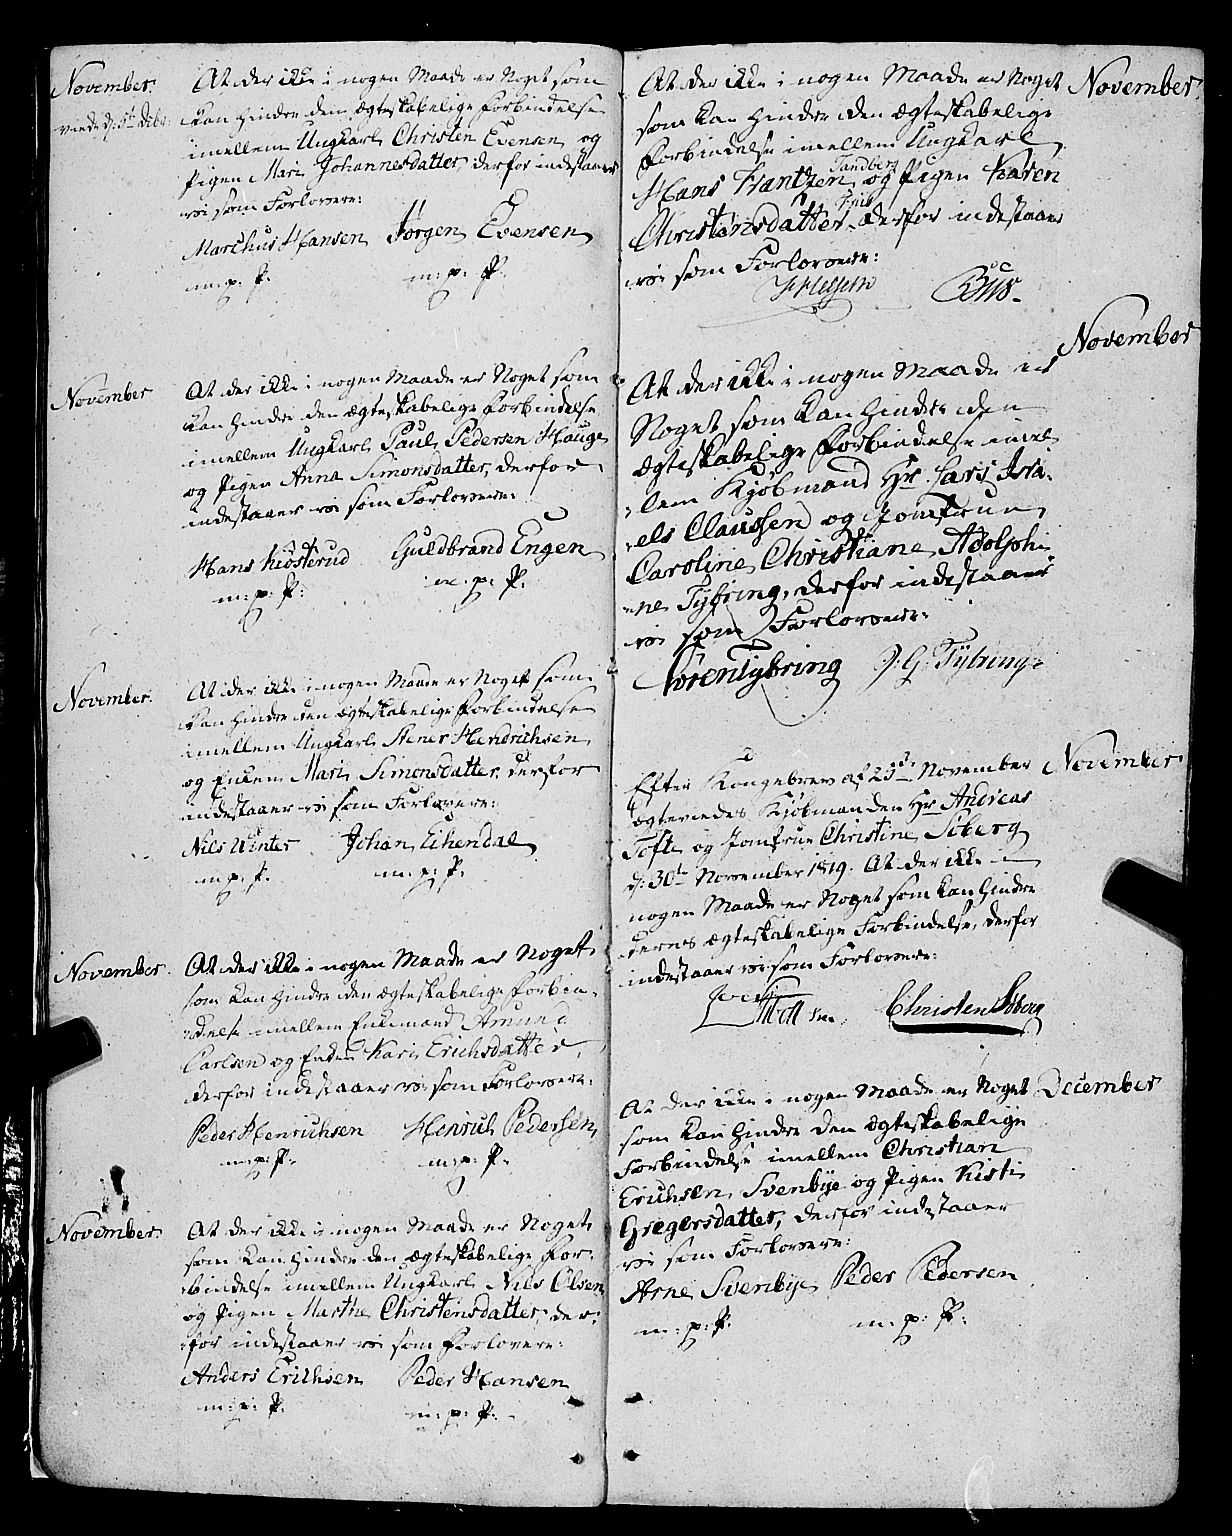 November.
viede d: 5te debr:
At der ikke i nogen Maade er Noget som
kan hindre den ægteskabelige Forbindelse
imellem Ungkarl Christen Evensen og
Pigen Mari Johannesdatter, derfor indestaaer
vi som Forlovere:
Marchus Hansen Jørgen Evensen
m: p. P. m: p: P.
November
At der ikke i nogen Maade er Noget som
kan hindre den ægteskabelige Forbindelse
imellem Ungkarl Paul Pedersen Hauge
og Pigen Anna Simonsdatter, derfor
indestaaer vi som Forlovere:
Hans Kiøsterud Guldbrand Engen
m: p: P: m. p: P.
November.
At der ikke i nogen Maade er Noget som
kan hindre den ægteskabelige Forbindelse
imellem Ungkarl Stener Hendrichsen
og Enken Mari Simonsdatter, derfor
indestaaer vi som Forlovere:
Nils Winter Johan Eikendal
m: p. P. m: p: P.
November.
At der ikke i nogen Maade er Noget
som kan hindre den ægteskabelige Forbin-
delse imellem Enkemand Amund
Carlsen og Enken Kari Erichsdatter,
derfor indestaaer vi som Forlovere:
Peder Henrichsen Henrich Pedersen
m: p: P. m: p: P.
November.
At der ikke i nogen Maade er Noget
som kan hindre den ægteskabelige For-
bindelse imellem Ungkarl Nils Olsen
og Pigen Marthe Christensdatter, der-
for indestaaer vi som Forlovere:
Anders Erichsen Peder Hansen
m: p: P. m: p: P.
November.
At der ikke i nogen Maade er Noget
som kan hindre den ægteskabelige
Forbindelse imellem Ungkarl
Hans Frantzen Tandberg og Pigen Karen
Christensdatter Friis, derfor indestaaer
vi som Forlovere:
November
At der ikke i nogen Maade er
Noget som kan hindre den
ægteskabelige Forbindelse imel-
lem Kjøbmand Hr Lars Isra-
els Claussen og Jomfrue
Caroline Christiane Adolphi-
ne Tybring, derfor indestaaer
vi som Forlovere:
Søren Tybring J. G. Tybring
November
Efter Kongebrev af 23de November
ægteviedes Kjøbmanden Hr Andreas
Tofte og Jomfrue Christine Søberg
d: 30te November 1819. At der ikke i
nogen Maade er Noget som kan hindre
deres ægteskabelige Forbindelse, derfor
indestaaer vi som Forlovere:
Christen Søberg
December
At der ikke i nogen Maade er Noget
som kan hindre den ægteskabelige
Forbindelse imellem Christian
Erichsen Svenbye og Pigen Kisti
Gregersdatter, derfor indestaaer
vi som Forlovere:
Arne Svenbye Peder Pedersen
m: p: P. m: p: P.